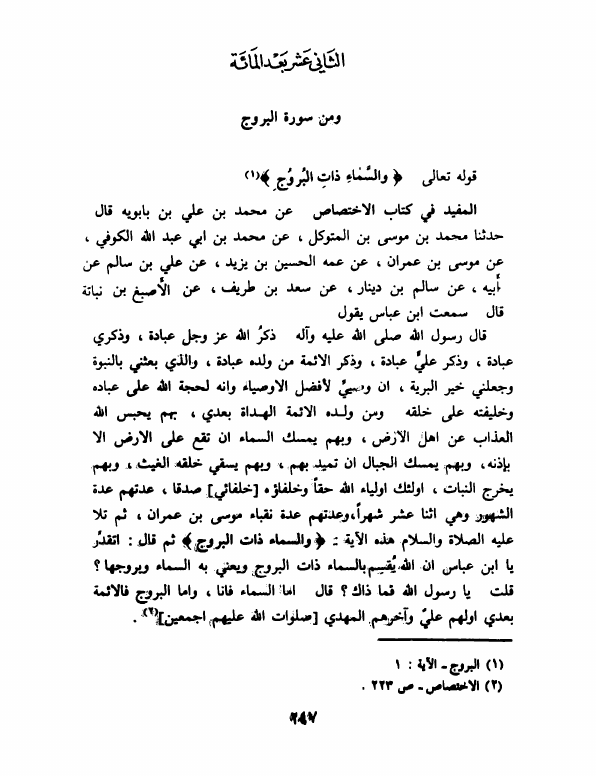 الثاني عشر بعد المائة
ومن سورة البروج
قوله تعالى ﴿ والسَّمَاءِ ذاتِ البُرُوُجِ ﴾(١)
المفيد في كتاب الاختصاص عن محمد بن علي بن بابويه قال
حدثنا محمد بن موسى بن المتوكل ، عن محمد بن ابي عبد الله الكوفي ،
عن موسى بن عمران ، عن عمه الحسين بن يزيد ، عن علي بن سالم عن
أبيه ، عن سالم بن دينار ، عن سعد بن طريف ، عن الأصبغ بن نباتة
قال سمعت ابن عباس يقول
قال رسول الله صلى الله عليه وآله ذكرُ الله عز وجل عبادة ، وذكري
عبادة ، وذكر عليٌّ عبادة ، وذكر الائمة من ولده عبادة ، والذي بعثني بالنبوة
وجعلني خير البرية ، ان وصيِّي لأفضل الاوصياء وانه لحجة الله على عباده
وخليفته على خلقه ومن ولده الائمة الهداة بعدي ، بهم يحبس الله
العذاب عن اهل الأرض ، وبهم يمسك السماء ان تقع على الارض الا
بإذنه ، وبهم يمسك الجبال ان تميد بهم ، وبهم يسقي خلقه الغيث ، وبهم
يخرج النبات ، اولئك اولياء الله حقاً وخلفاؤه [خلفائي] صدقا ، عدتهم عدة
الشهور وهي اثنا عشر شهراً ، وعدتهم عدة نقباء موسى بن عمران ، ثم تلا
عليه الصلاة والسلام هذه الآية :ـ ﴿ والسماء ذات البروج ﴾ ثم قال : اتقدِّر
يا ابن عباس ان الله يُقسِم بالسماء ذات البروج ويعني به السماء وبروجها ؟
قلت يا رسول الله فما ذاك ؟ قال اما السماء فانا ، واما البروج فالائمة
بعدي اولهم عليّ وآخرهم المهدي [صلوات الله عليهم اجمعين](٢) .
(١) البروج ـ الآية : ١
(٢) الاختصاص ـ ص ٢٢٣ .
٦٤٧